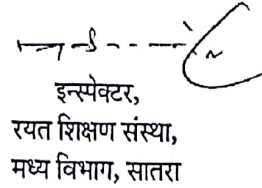 इन्स्पेक्टर,
रयत शिक्षण संस्था,
मध्य विभाग, सातरा